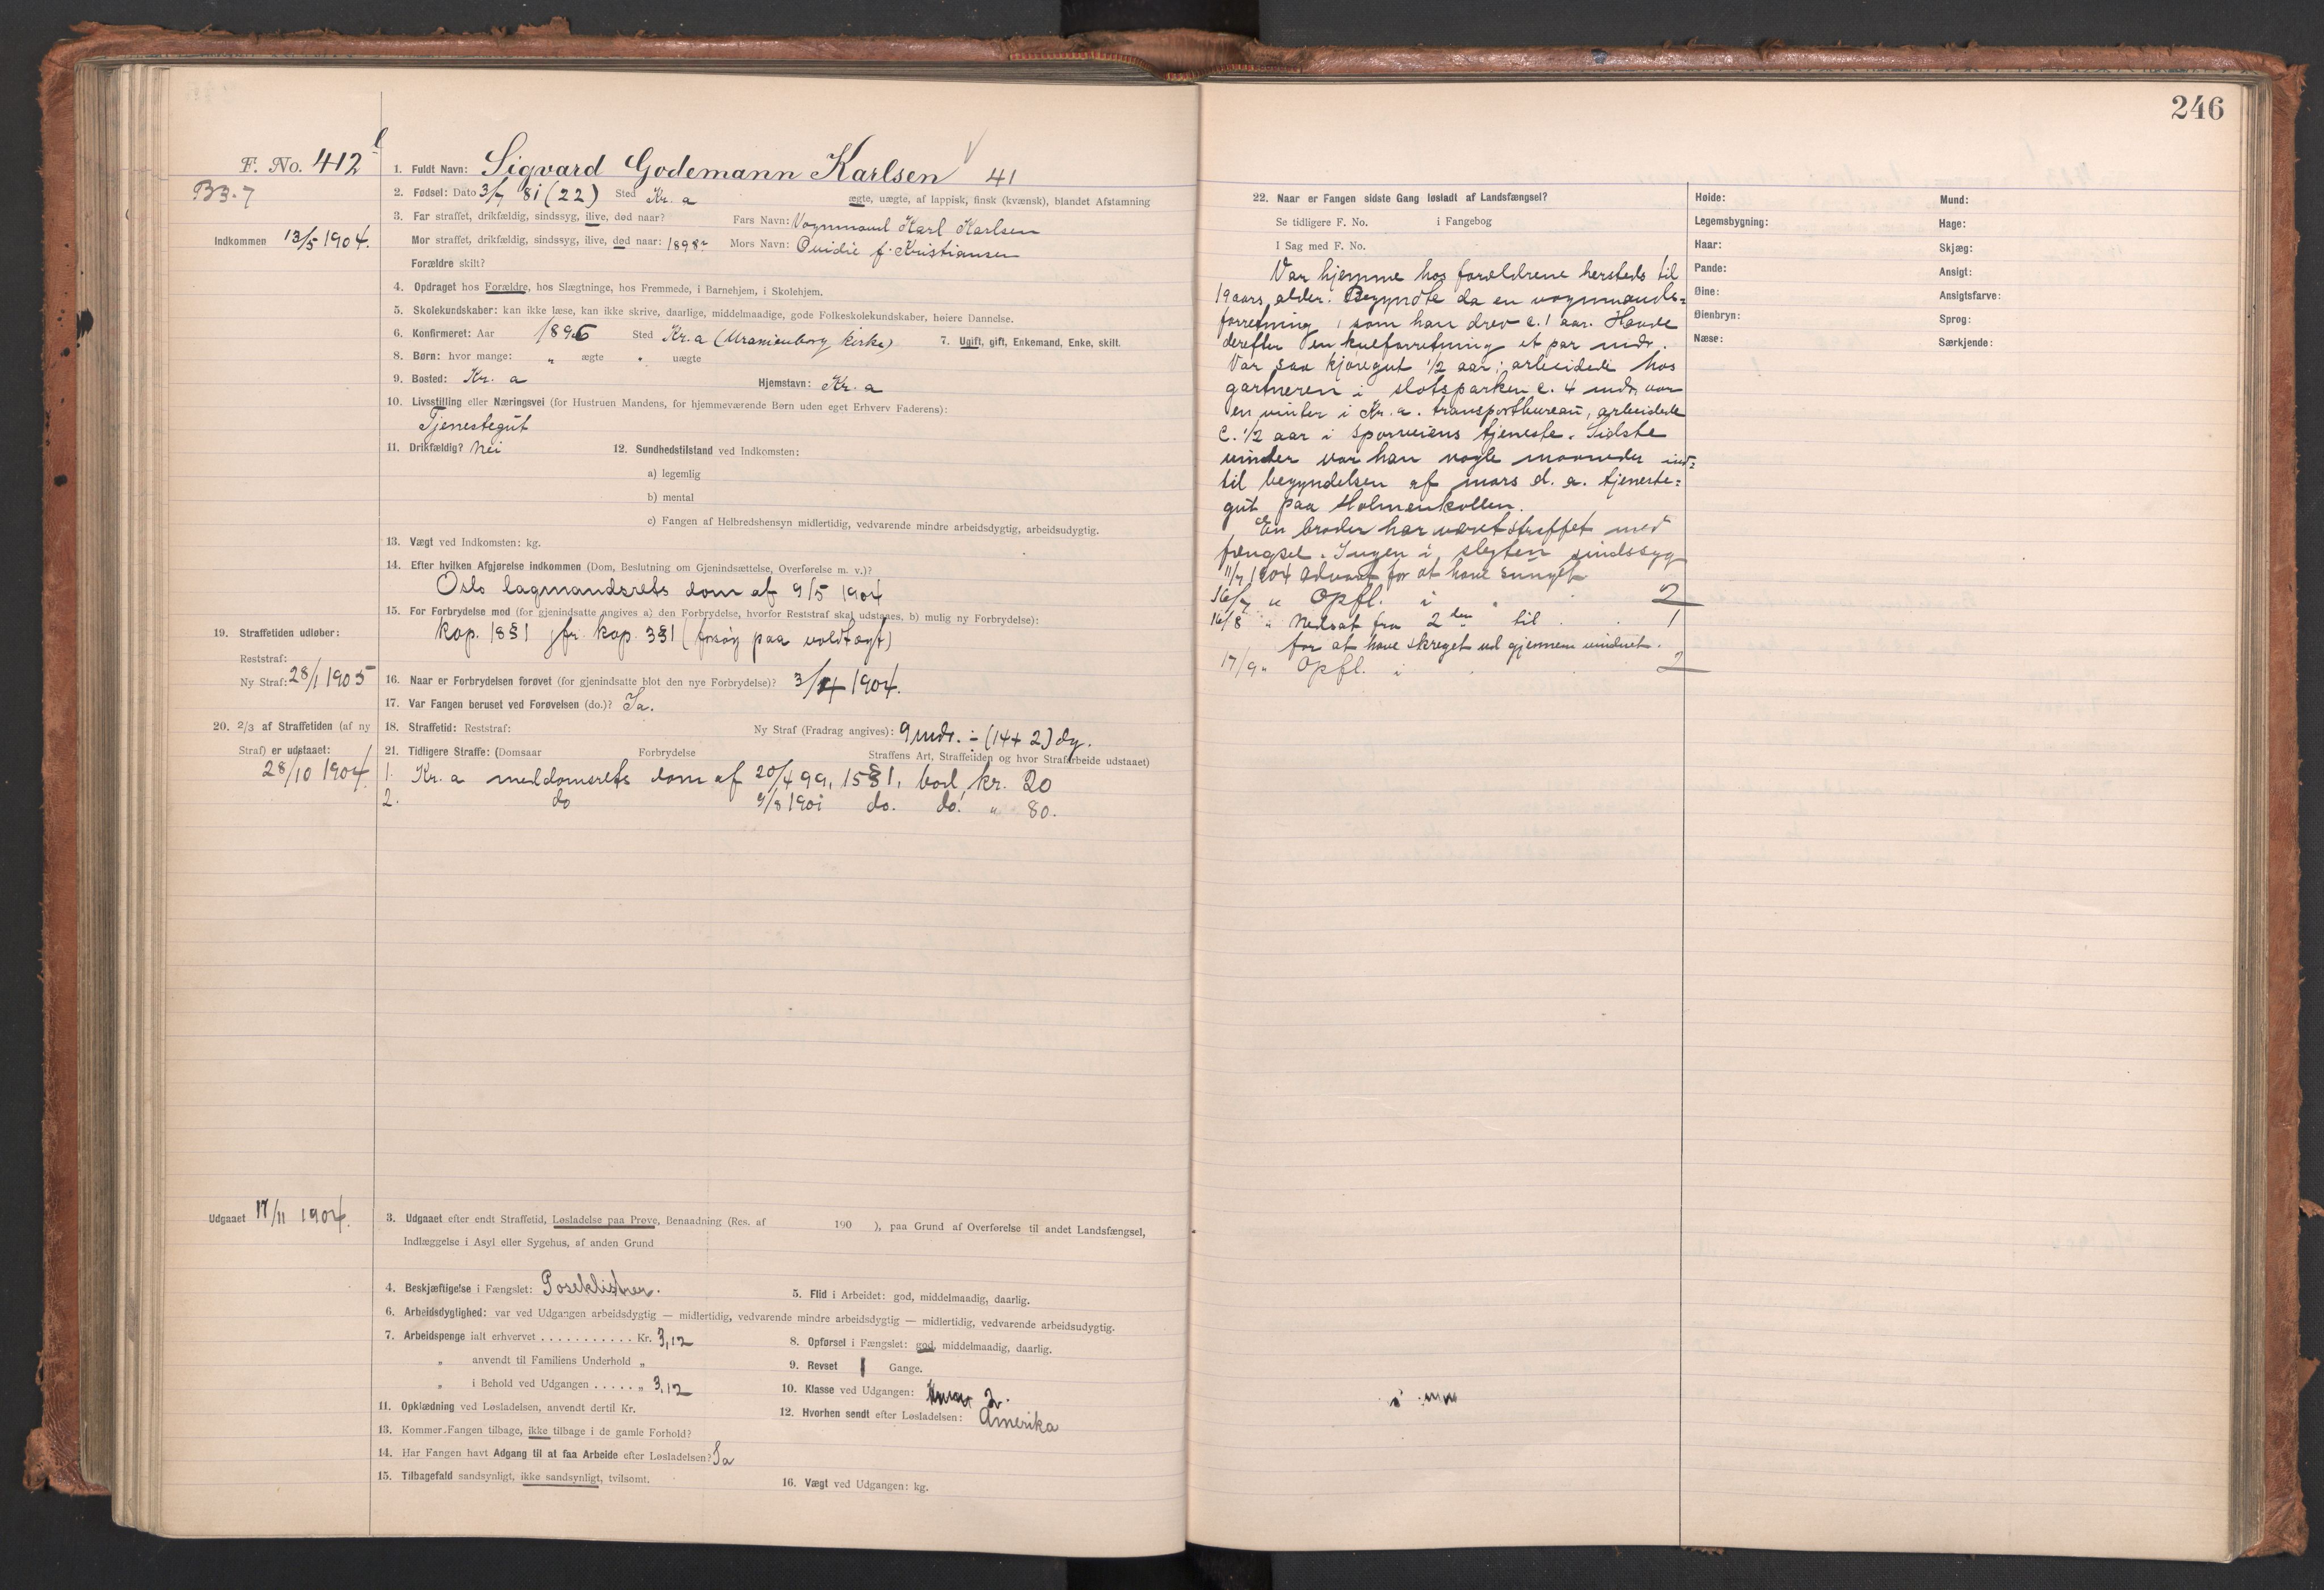 246
F. No. 412
B3.7
Indkommen 13/5 1904.
1. Fuldt Navn: Sigvard Godemann Karlsen 41
2. Fødsel: Dato 3/7 81 (22) Sted Kr.a ægte, uægte, af lappisk, finsk (kvænsk), blandet Afstamning
3. Far straffet, drikfældig, sindssyg, ilive, død naar? Fars Navn: Vognmand Karl Karlsen
Mor straffet, drikfældig, sindssyg, ilive, død naar: 1898 Mors Navn: Ovidie f. Kristiansen
Forældre skilt?
4. Opdraget hos Forældre, hos Slægtninge, hos Fremmede, i Barnehjem, i Skolehjem.
5. Skolekundskaber: kan ikke læse, kan ikke skrive, daarlige, middelmaadige, gode Folkeskolekundskaber, høiere Dannelse.
6. Konfirmeret: Aar 1896 Sted Kr.a (Uranienborg kirke) 7. Ugift, gift, Enkemand, Enke, skilt.
8. Børn: hvor mange: " ægte " uægte
9. Bosted: Kr. a Hjemstavn: Kr. a
10. Livsstilling eller Næringsvei (for Hustruen Mandens, for hjemmeværende Børn uden eget Erhverv Faderens):
Tjenestegut
11. Drikfældig? Nei 12. Sundhedstilstand ved Indkomsten:
a) legemlig
b) mental
c) Fangen af Helbredshensyn midlertidig, vedvarende mindre arbeidsdygtig, arbeidsudygtig.
13. Vægt ved Indkomsten: kg.
14. Efter hvilken Afgjørelse indkommen (Dom, Beslutning om Gjenindsættelse, Overførelse m. v.)?
Oslo lagmandsrets dom af 9/5 1904
15. For Forbrydelse mod (for gjenindsatte angives a) den Forbrydelse, hvorfor Reststraf skal udstaaes, b) mulig ny Forbrydelse):
kap. 18 § 1 jfr. kap. 3 § 1 (forsøg paa voldtægt)
19. Straffetiden udløber:
Reststraf:
Ny Straf: 28/1 1905
16. Naar er Forbrydelsen forøvet (for gjenindsatte blot den nye Forbrydelse)? 3/4 1904.
17. Var Fangen beruset ved Forøvelsen (do.)? Ja.
20. 2/3 af Straffetiden (af ny Straf) er udstaaet:
28/10 1904
18. Straffetid: Reststraf: Ny Straf (Fradrag angives): 9 mdr. ÷ (14 + 2) dg.
21. Tidligere Straffe: (Domsaar Forbrydelse Straffens Art, Straffetiden og hvor Strafarbeide udstaaet)
1. Kr. a meddomsrets dom af 20/4 99, 15 § 1, bod, kr. 20
2. do 9/8 1901 do. do. " 80.
Udgaaet 17/11 1904.
3. Udgaaet efter endt Straffetid, Løsladelse paa Prøve, Benaadning (Res. af 190 ), paa Grund af Overførelse til andet Landsfængsel,
Indlæggelse i Asyl eller Sygehus, af anden Grund
4. Beskjæftigelse i Fængslet: Poseklistrer. 5. Flid i Arbeidet: god, middelmaadig, daarlig.
6. Arbeidsdyglighed: var ved Udgangen arbeidsdygtig — midlertidig, vedvarende mindre arbeidsdygtig — midlertidig, vedvarende arbeidsudygtig.
7. Arbeidspenge ialt erhvervet . . . . . . . . . . . Kr. 3,12 8. Opførsel i Fængslet: god, middelmaadig, daarlig.
" anvendt til Familiens Underhold " 9. Revset 1 Gange.
" i Behold ved Udgangen . . . . . " 3,12 10. Klasse ved Udgangen: 2.
11. Opklædning ved Løsladelsen, anvendt dertil Kr. 12. Hvorhen sendt efter Løsladelsen: Amerika
13. Kommer Fangen tilbage, ikke tilbage i de gamle Forhold?
14. Har Fangen havt Adgang til at faa Arbeide efter Løsladelsen? Ja
15. Tilbagefald sandsynligt, ikke sandsynligt, tvilsomt. 16. Vægt ved Udgangen: kg.
22. Naar er Fangen sidste Gang løsladt af Landsfængsel?
Se tidligere F. No. i Fangebog
I Sag med F. No.
Var hjemme hos forældrene hersteds til
19 aars alder. Begyndte da en vognmands=
forretning, som han drev c. 1 aar. Havde
derefter en kulforretning et par mdr.
Var saa kjøregut 1/2 aar; arbeidede hos
gartneren i slotsparken c. 4 mdr, var
en vinter i Kr. a. transportbureau, arbeidede
c. 1/2 aar i sporveiens tjeneste. Sidste
vinter var han nogle maaneder ind=
til begyndelsen af mars d. a. tjeneste=
gut paa Holmenkollen.
En broder har været straffet med
fængsel. Ingen i slegten sindssyg
11/7 1904 advart for at have sunget
16/7 " Opfl. i " 2
16/8 " Nedsat fra 2den til . . 1
for at have skreget ud gjennem vinduet.
17/9 " Opfl. i 2
Høide:
Legemsbygning:
Haar:
Pande:
Øine:
Øienbryn:
Næse:
Mund:
Hage:
Skjæg:
Ansigt:
Ansigtsfarve:
Sprog:
Særkjende: